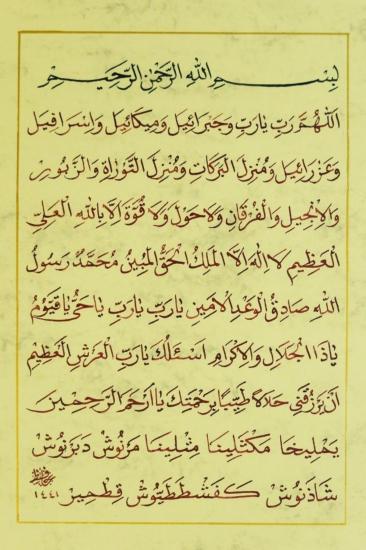 بِسْمِ اللهِ الرَّحْمٰنِ الرَّحِيْمِ
اَللّٰهُمَّ رَبِّ يَارَبِّ وَجَبْرَائِيلَ وَمِيكَائِيلَ وَاِسْرَافِيلَ
وَعَزْرَائِيلَ وَمُنْزِلَ الْبَرَكَاتِ وَمُنْزِلَ التَّوْرَاةِ وَالزَّبُورِ
وَالْاِنْجِيلِ وَالْفُرْقَانِ وَلَاحَوْلَ وَلَاقُوَّةَ اِلَّا بِاللهِ الْعَلِيِّ
الْعَظِيمِ لَا اِلٰهَ اِلَّا الْمَلِكُ الْحَقُّ الْمُبِينُ مُحَمَّدٌ رَسُولُ
اللهِ صَادِقُ الْوَعْدِ الْاَمِينِ يَارَبِّ يَارَبِّ يَاحَىُّ يَاقَيُّومُ
يَاذَا الْجَلَالِ وَالْاِكْرَامِ اَسْئَلُكَ يَارَبَّ الْعَرْشِ الْعَظِيمِ
اَنْ يَرْزُقَنِى حَلَالًا طَيِّبًا بِرَحْمَتِكَ يَااَرْحَمَ الرَّاحِمِينَ
يَمْلِيخَا مَكْثَلِينَا مِثْلِينَا مَرْنُوشْ دَبَرْنُوشْ
شَاذَنُوشْ كَفَشْطَطَيُّوشْ قِطْمِيرْ
١٤٤١